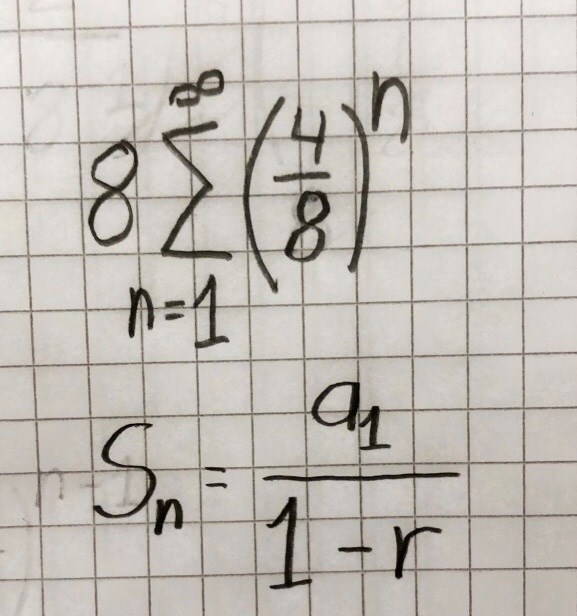 8 ∑_{n=1}^{∞} (4/8)^n
S_n = a_1 / (1 - r)